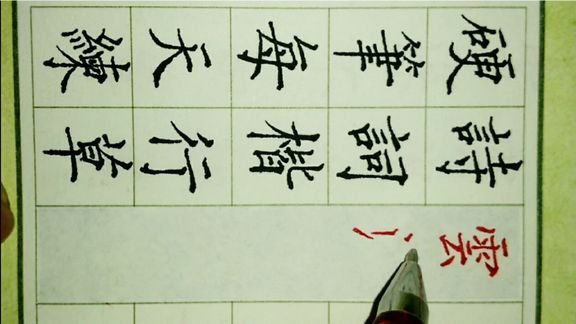 硬筆每天練
詩詞楷行草
雲